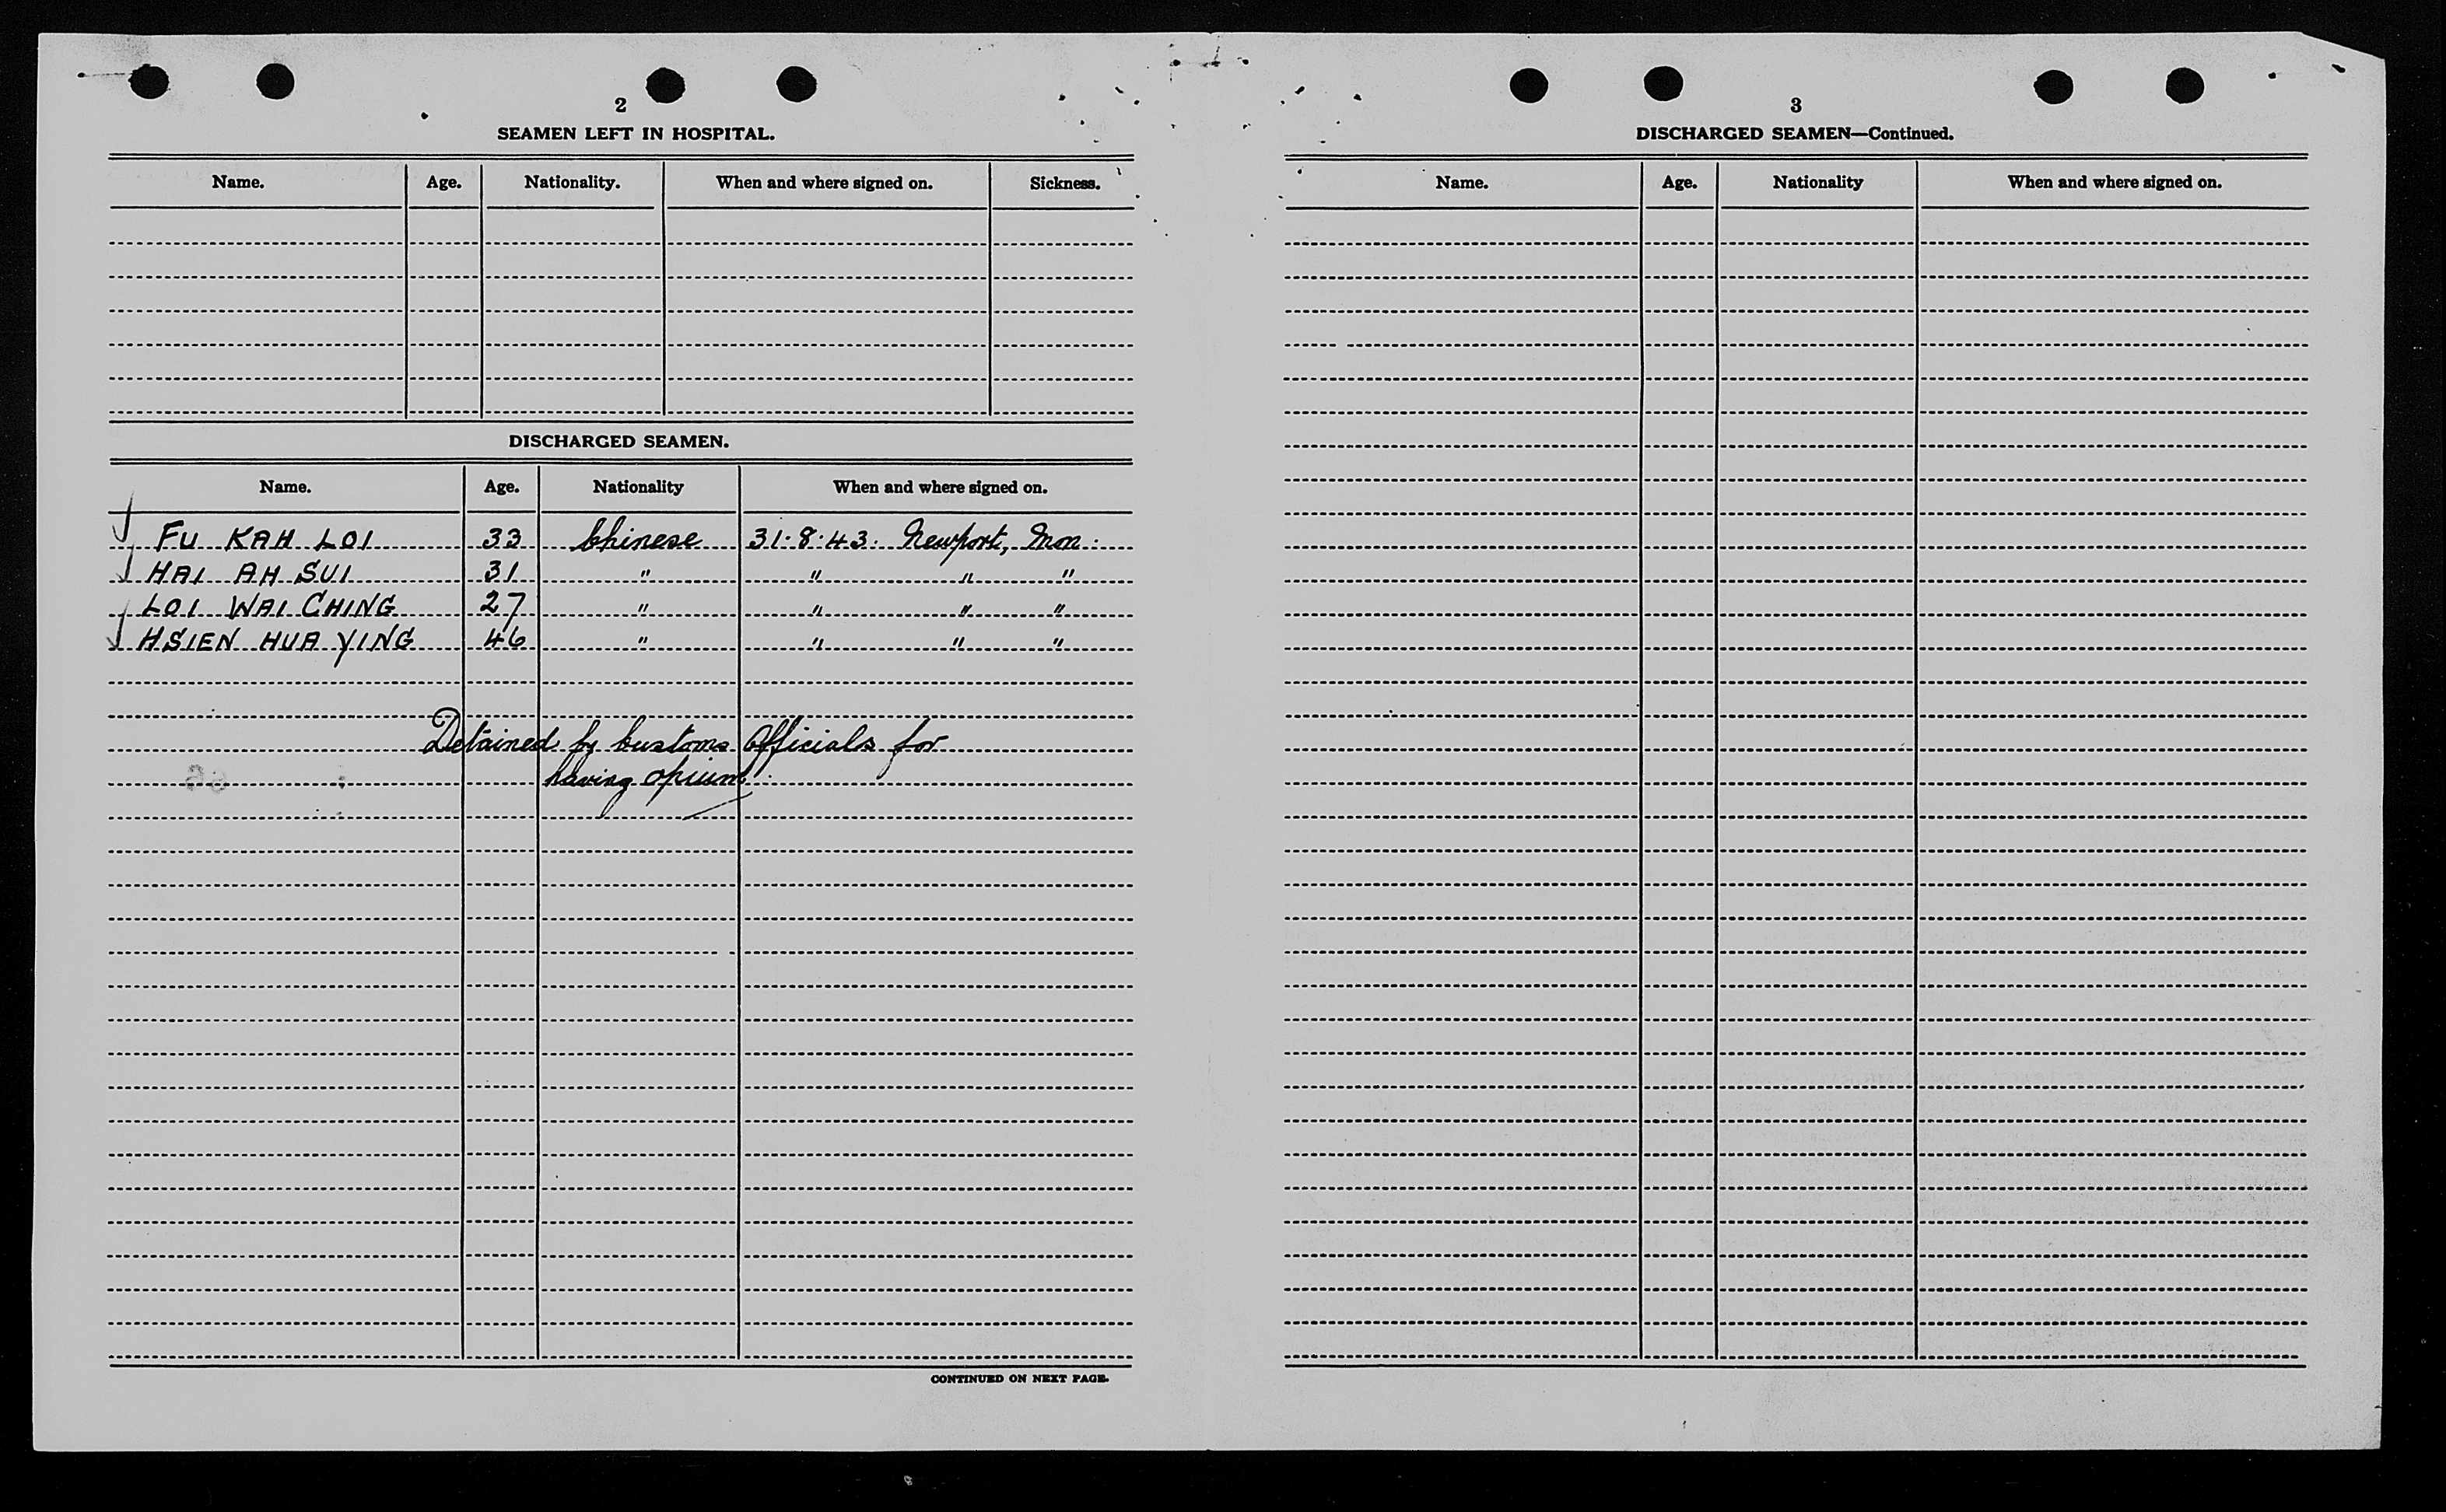 2
SEAMEN LEFT IN HOSPITAL.
Name. Age. Nationality. When and where signed on. Sickness.
DISCHARGED SEAMEN.
Name. Age. Nationality When and where signed on.
FU KAH LOI 33 Chinese 31·8·43. Newport, Mon.
HAI AH SUI 31 " " " "
LOI WAI CHING 27 " " " "
HSIEN HUA YING 46 " " " "
Detained by Customs Officials for
having opium.
CONTINUED ON NEXT PAGE.
3
DISCHARGED SEAMEN—Continued.
Name. Age. Nationality When and where signed on.